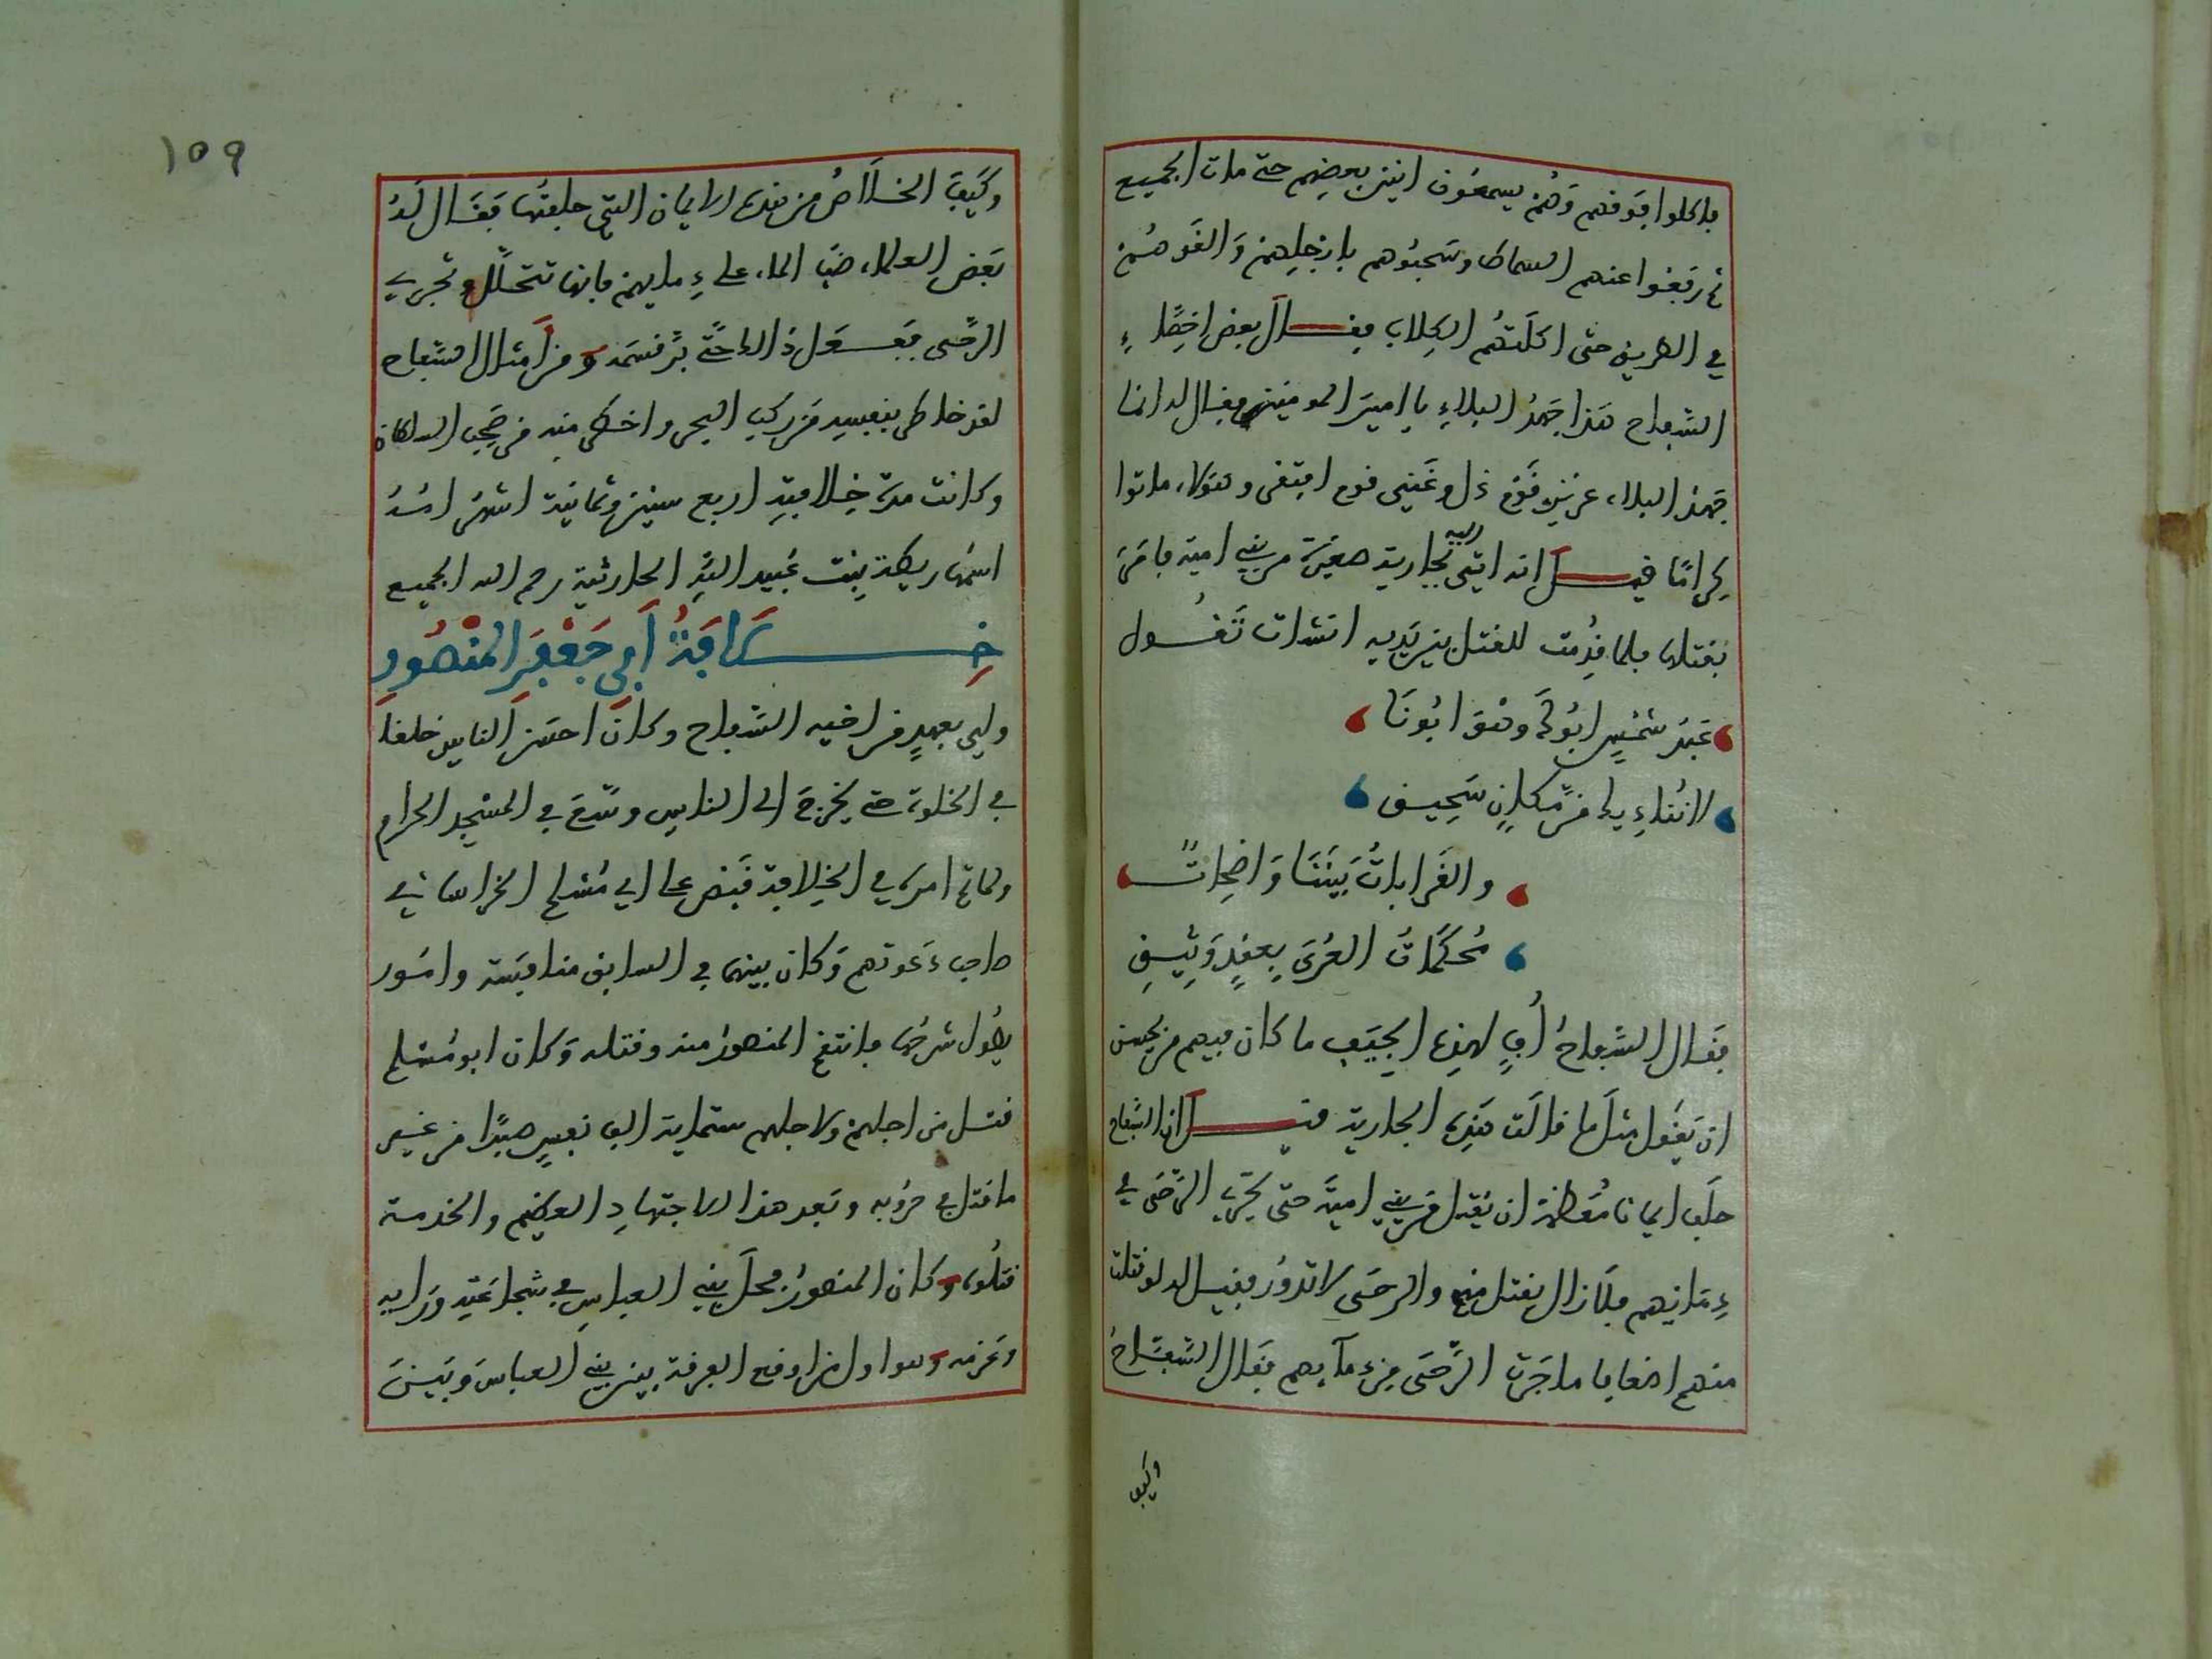 فاكلوا فوقهم وهم يسمعون انين بعضهم حتى مات الجميع
ثم رفعوا عنهم السماط وسحبوهم بارجلهم والقوهم
في الطريق حتى اكلتهم الكلاب فقال بعض اخصاء
السفاح هذا جهد البلاء يا امير المومنين فقال له انما
جهد البلاء عزيز قوم ذل وغني قوم افتقر وهؤلاء ماتوا
كراما قيل انه اتي اليه بجارية صغيرة من بني امية فامر
بقتلها فلما قدمت للقتل بين يديه انشدت تقول
عبد شمس ابوك وهو ابونا
لا نناديك من مكان سحيق
والقرابات بيننا واضحات
محكمات العرى بعقد وثيق
فقال السفاح أف لهذه الجيف ما كان فيهم من يحسن
ان يقول مثل ما قالت هذه الجارية قيل ان السفاح
حلف ايمانا مغلظة ان يقتل من بني امية حتى تجري الرحى في
دمائهم فلا زال يقتل منهم والرحى لا تدور فقيل له لو قتلت
منهم اضعافا ما جرت الرحى من دمائهم فقال السفاح
وكيف
١٥٩
وكيف الخلاص من هذه الايمان التي حلفتها فقال له
بعض العلماء صب الماء على دمايهم فانها تتحلل وتجري
الرحى ففعل ذالك حتى بر قسمه ومن امثال السفاح
لقد خاطر بنفسه من ركب البحر واخطر منه من صحب السلطان
وكانت مدة خلافته اربع سنين وثمانية اشهر امه
اسمها ريطة بنت عبيد الله الحارثية رحم الله الجميع
خلافة أبي جعفر المنصور
ولي بعهد من اخيه السفاح وكان احسن الناس خلقا
في الخلوة حتى يخرج الى الناس وسع في المسجد الحرام
ولما تم امره في الخلافة قبض على ابي مسلم الخراساني
صاحب دعوتهم وكان بينهما في السابق منافسة وامور
يطول شرحها فانتقم المنصور منه وقتله وكان ابو مسلم
قتل من اجلهم ولاجلهم ستماية الف نفس صبرا من غير
ما قتل في حروبه وبعد هذا الاجتهاد العظيم والخدمة
قتلوه وكان المنصور فحل بني العباس في شجاعته ورايه
وعزمه وهو اول من اوقع الفرقة بين بني العباس وبين